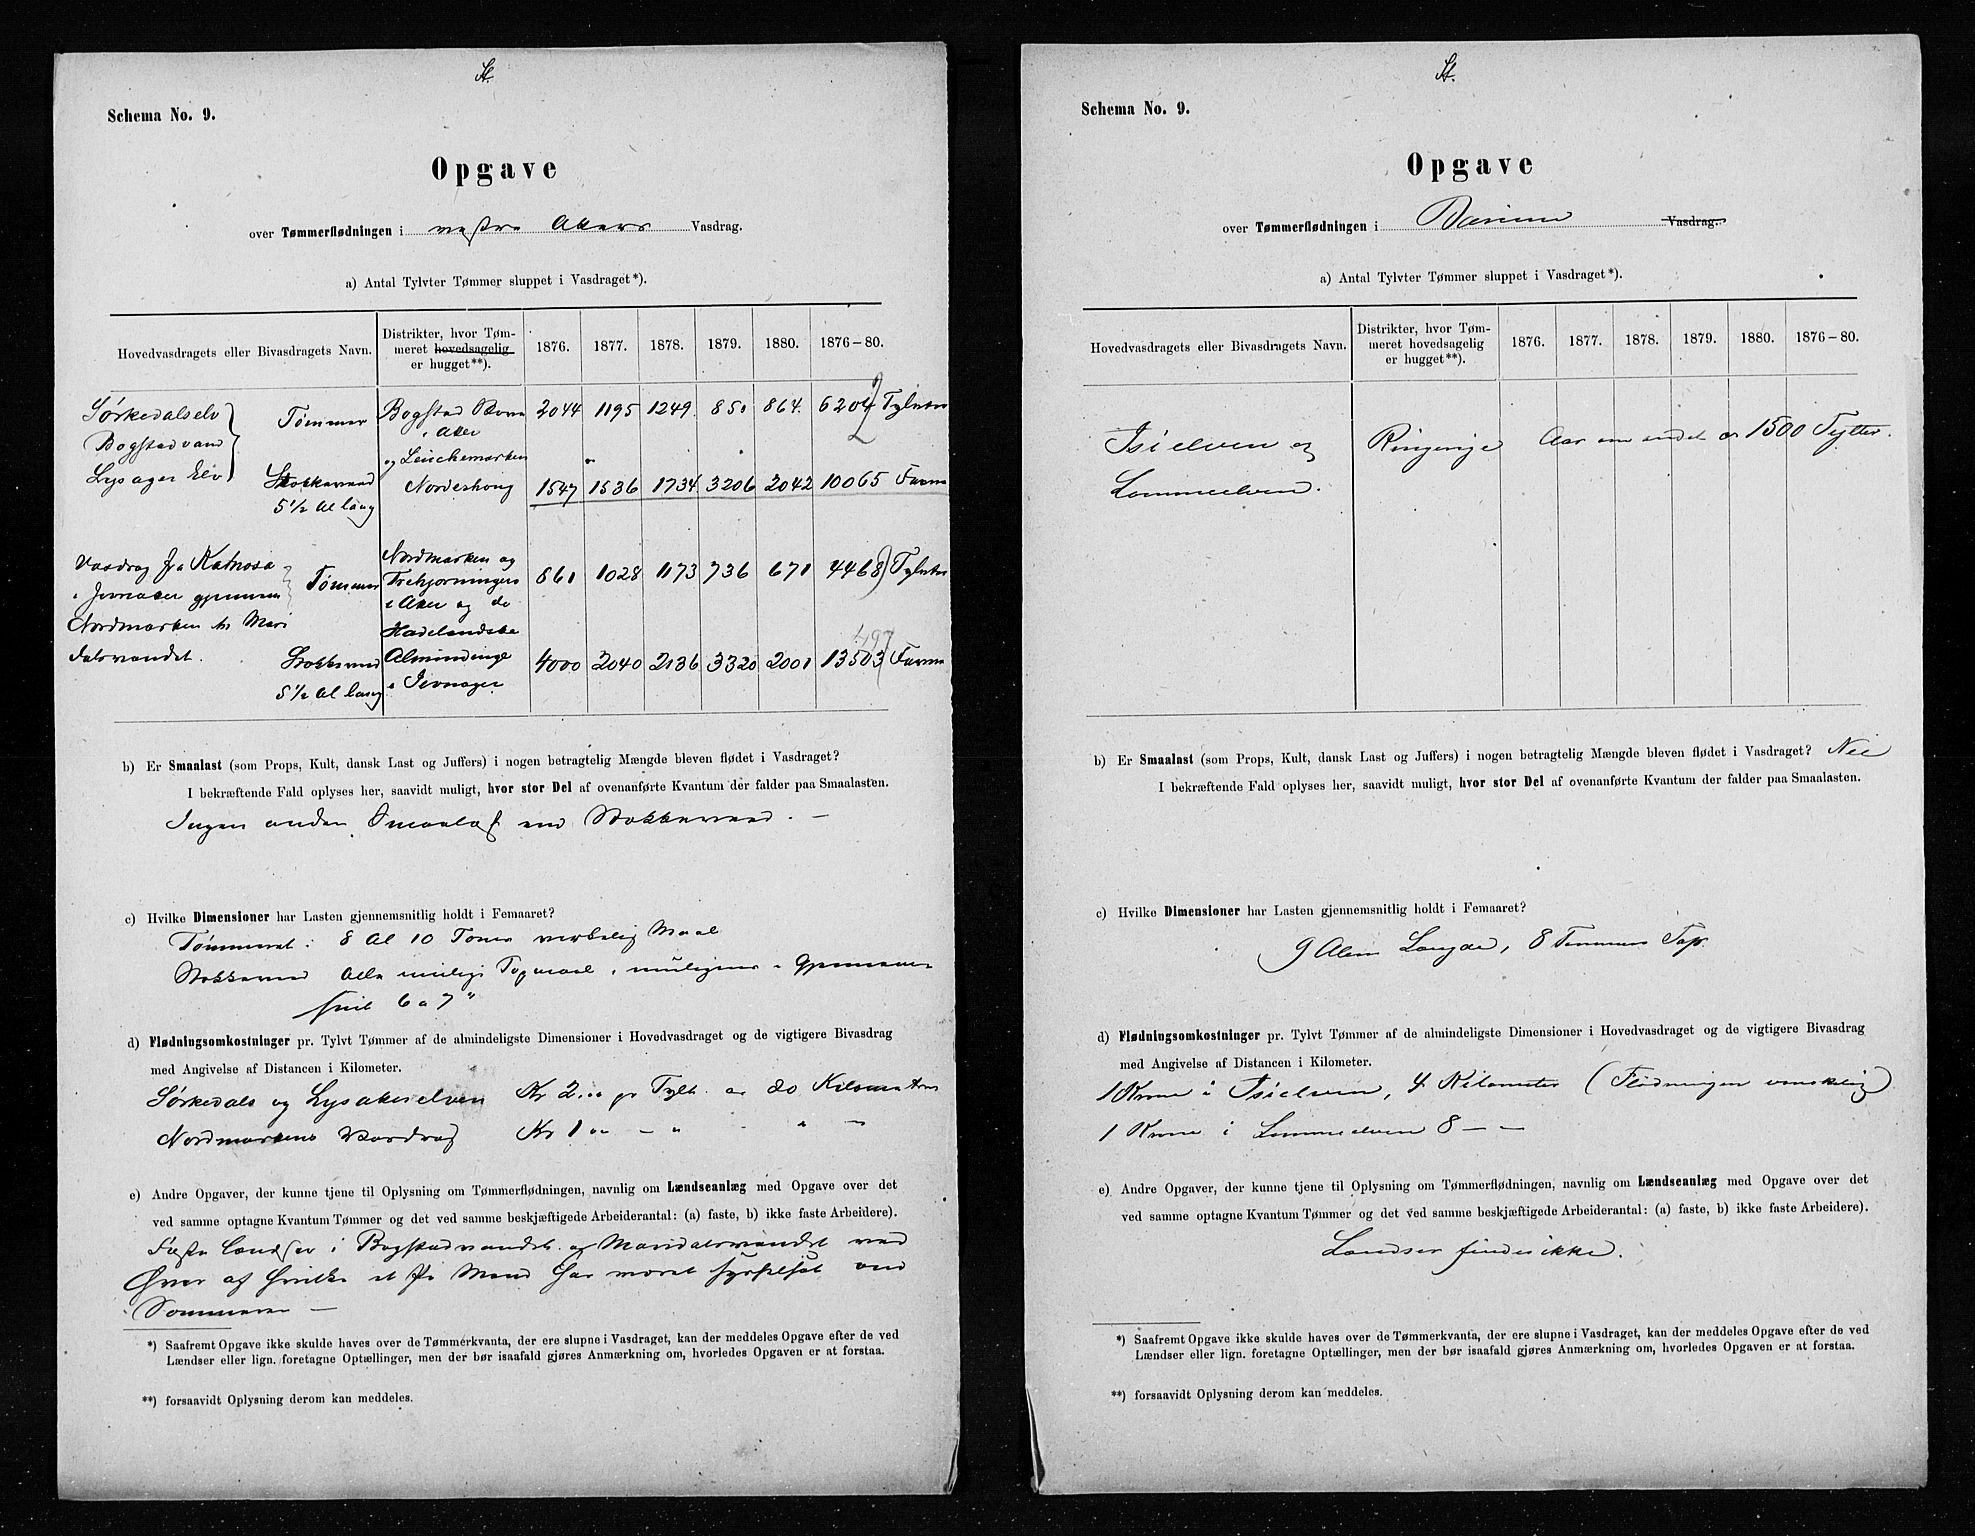 St.
Schema No. 9.
Opgave
over Tømmerflødningen i vestre Akers Vasdrag.
a) Antal Tylvter Tømmer sluppet i Vasdraget*).
Hovedvasdragets eller Bivasdragets Navn. Distrikter, hvor Tømmeret hovedsagelig er hugget**). 1876. 1877. 1878. 1879. 1880. 1876–80.
Sørkedalselv Tømmer Bogstad 2044 1195 1249 851 864 6204 Tylvter
Bogstadvand i Aker
Lysager Elv og
Stokkeved Nordeshoug 1547 1536 1734 3206 2042 10065 Favne
5 1/2 Al lang
Vasdrag fra Katnosa Nordmarken og
i Jevnaker gjennem Tømmer 861 1028 1173 736 671 4468 Tylvter
i Aker og de
Nordmarken til Mari Hadelandske
dalsvandet. Stokkeved Almindinge 4000 2040 2136 3320 2001 13503 Favne
497
5 1/2 Al lang i Jevnager
b) Er Smaalast (som Props, Kult, dansk Last og Juffers) i nogen betragtelig Mængde bleven flødet i Vasdraget?
I bekræftende Fald oplyses her, saavidt muligt, hvor stor Del af ovenanførte Kvantum der falder paa Smaalasten.
Ingen anden Smaalast end Stokkeved. —
c) Hvilke Dimensioner har Lasten gjennemsnitlig holdt i Femaaret?
Tømmeret: 8 Al 10 Tomer Maal
Stokkeved alle mulige Topmaal, Gjennem
snit 6 a 7"
d) Flødningsomkostninger pr. Tylvt Tømmer af de almindeligste Dimensioner i Hovedvasdraget og de vigtigere Bivasdrag
med Angivelse af Distancen i Kilometer.
Sørkedals og Lysakerelven Kr 2.„ pr Tylt. 20 Kilometer
Nordmarkens Vasdrag Kr 1 „ — „ — „ —
e) Andre Opgaver, der kunne tjene til Oplysning om Tømmerflødningen, navnlig om Lændseanlæg med Opgave over det
ved samme optagne Kvantum Tømmer og det ved samme beskjæftigede Arbeiderantal: (a) faste, b) ikke faste Arbeidere).
Faste Lændser i Bogstadvandet og Maridalsvandet ved
Hver af hvilke et Par Mand har været sysselsat om
Sommeren —
*) Saafremt Opgave ikke skulde haves over de Tømmerkvanta, der ere slupne i Vasdraget, kan der meddeles Opgave efter de ved
Lændser eller lign. foretagne Optællinger, men der bør isaafald gjøres Anmærkning om, hvorledes Opgaven er at forstaa.
**) forsaavidt Oplysning derom kan meddeles.
St.
Schema No. 9.
Opgave
over Tømmerflødningen i Bærum Vasdrag.
a) Antal Tylvter Tømmer sluppet i Vasdraget*).
Hovedvasdragets eller Bivasdragets Navn. Distrikter, hvor Tømmeret hovedsagelig er hugget**). 1876. 1877. 1878. 1879. 1880. 1876–80.
Isielven og Ringerige Aar om andet ca 1500 Tylter.
Lommeelven.
b) Er Smaalast (som Props, Kult, dansk Last og Juffers) i nogen betragtelig Mængde bleven flødet i Vasdraget? Nei
I bekræftende Fald oplyses her, saavidt muligt, hvor stor Del af ovenanførte Kvantum der falder paa Smaalasten.
c) Hvilke Dimensioner har Lasten gjennemsnitlig holdt i Femaaret?
9 Alen Længde, 8 Tommers Top.
d) Flødningsomkostninger pr. Tylvt Tømmer af de almindeligste Dimensioner i Hovedvasdraget og de vigtigere Bivasdrag
med Angivelse af Distancen i Kilometer.
1 Krone i Isielven, 4 Kilometer (Flødningen vanskelig)
1 Krone i Lommeelven 8 — —
e) Andre Opgaver, der kunne tjene til Oplysning om Tømmerflødningen, navnlig om Lændseanlæg med Opgave over det
ved samme optagne Kvantum Tømmer og det ved samme beskjæftigede Arbeiderantal: (a) faste, b) ikke faste Arbeidere).
Lændser findes ikke.
*) Saafremt Opgave ikke skulde haves over de Tømmerkvanta, der ere slupne i Vasdraget, kan der meddeles Opgave efter de ved
Lændser eller lign. foretagne Optællinger, men der bør isaafald gjøres Anmærkning om, hvorledes Opgaven er at forstaa.
**) forsaavidt Oplysning derom kan meddeles.